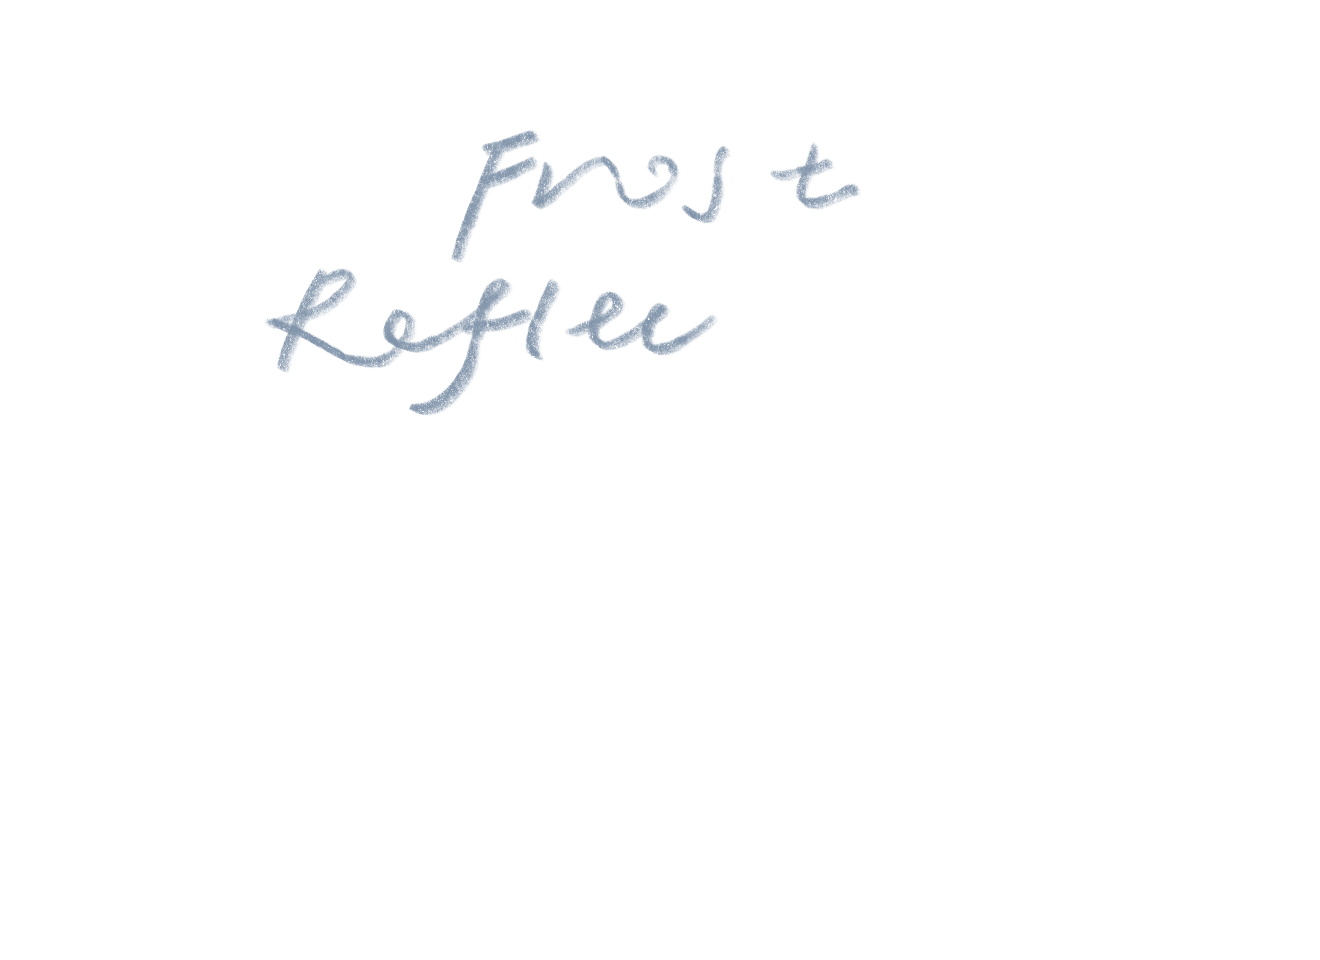 Frost
Reflec